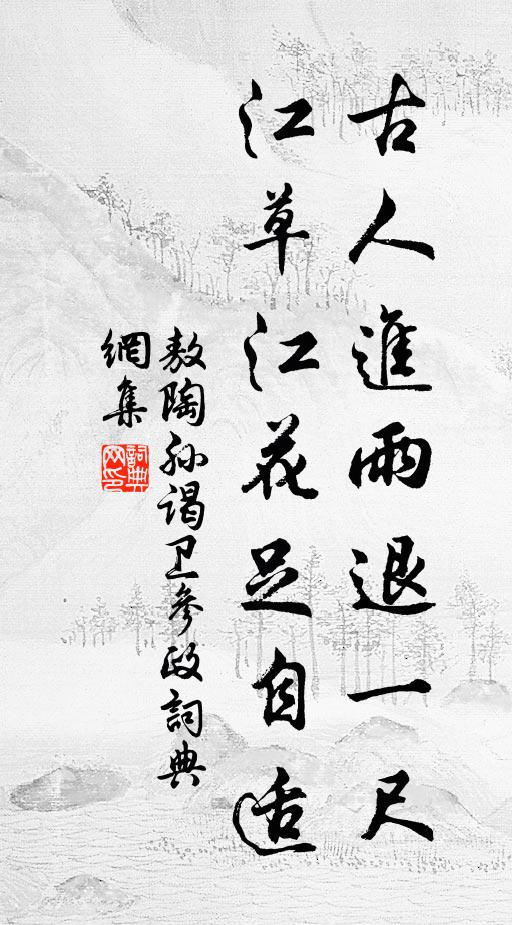 古人進雨退一尺
江草江花足自适
敖陶孙谒卫参政詞典
網集
詞典
网印